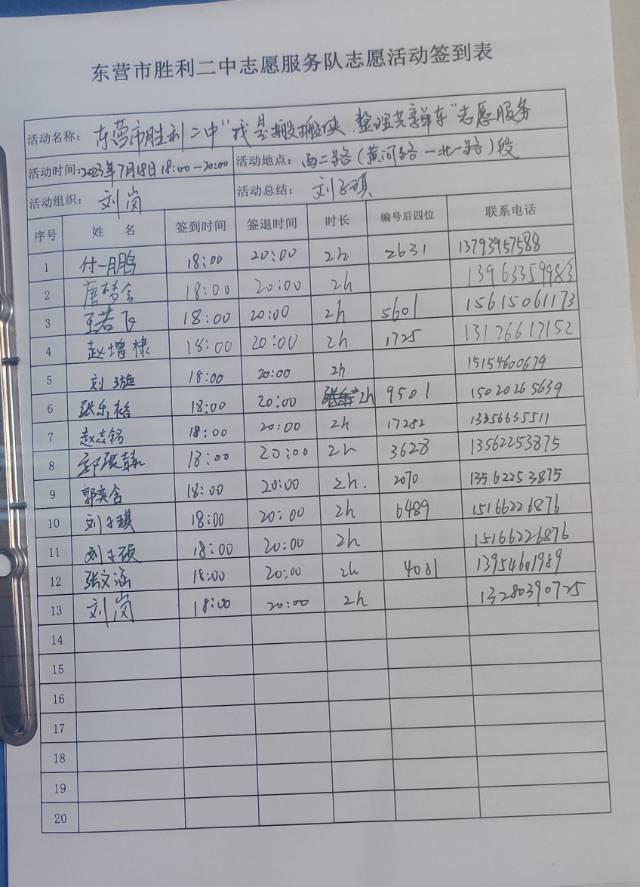 东营市胜利二中志愿服务队志愿活动签到表
活动名称: 东营市胜利二中"我是搬搬侠 整理共享单车"志愿服务
活动时间:2023年7月18日18:00—20:00 活动地点: 西二路(黄河路—北一路)段
活动组织: 刘岗 活动总结: 刘子琪
序号 姓 名 签到时间 签退时间 时长 编号后四位 联系电话
1 付一鹏 18:00 20:00 2h 2631 13793957588
2 唐梦含 18:00 20:00 2h 13963359983
3 王若飞 18:00 20:00 2h 5601 15615061173
4 赵增棣 18:00 20:00 2h 1725 13176617152
5 刘璇 18:00 20:00 2h 15154600679
6 张乐格 18:00 20:00 2h 9501 15020265639
7 赵志铭 18:00 20:00 2h 17282 13356635511
8 18:00 20:00 2h 3628 13562253875
9 郭奕含 18:00 20:00 2h. 2070 13562253875
10 刘子琪 18:00 20:00 2h 6489 15166226876
11 刘子硕 18:00 20:00 2h 15166226876
12 张文涵 18:00 20:00 2h 4081 13954601989
13 刘岗 18:00 20:00 2h 13280390725
14
15
16
17
18
19
20